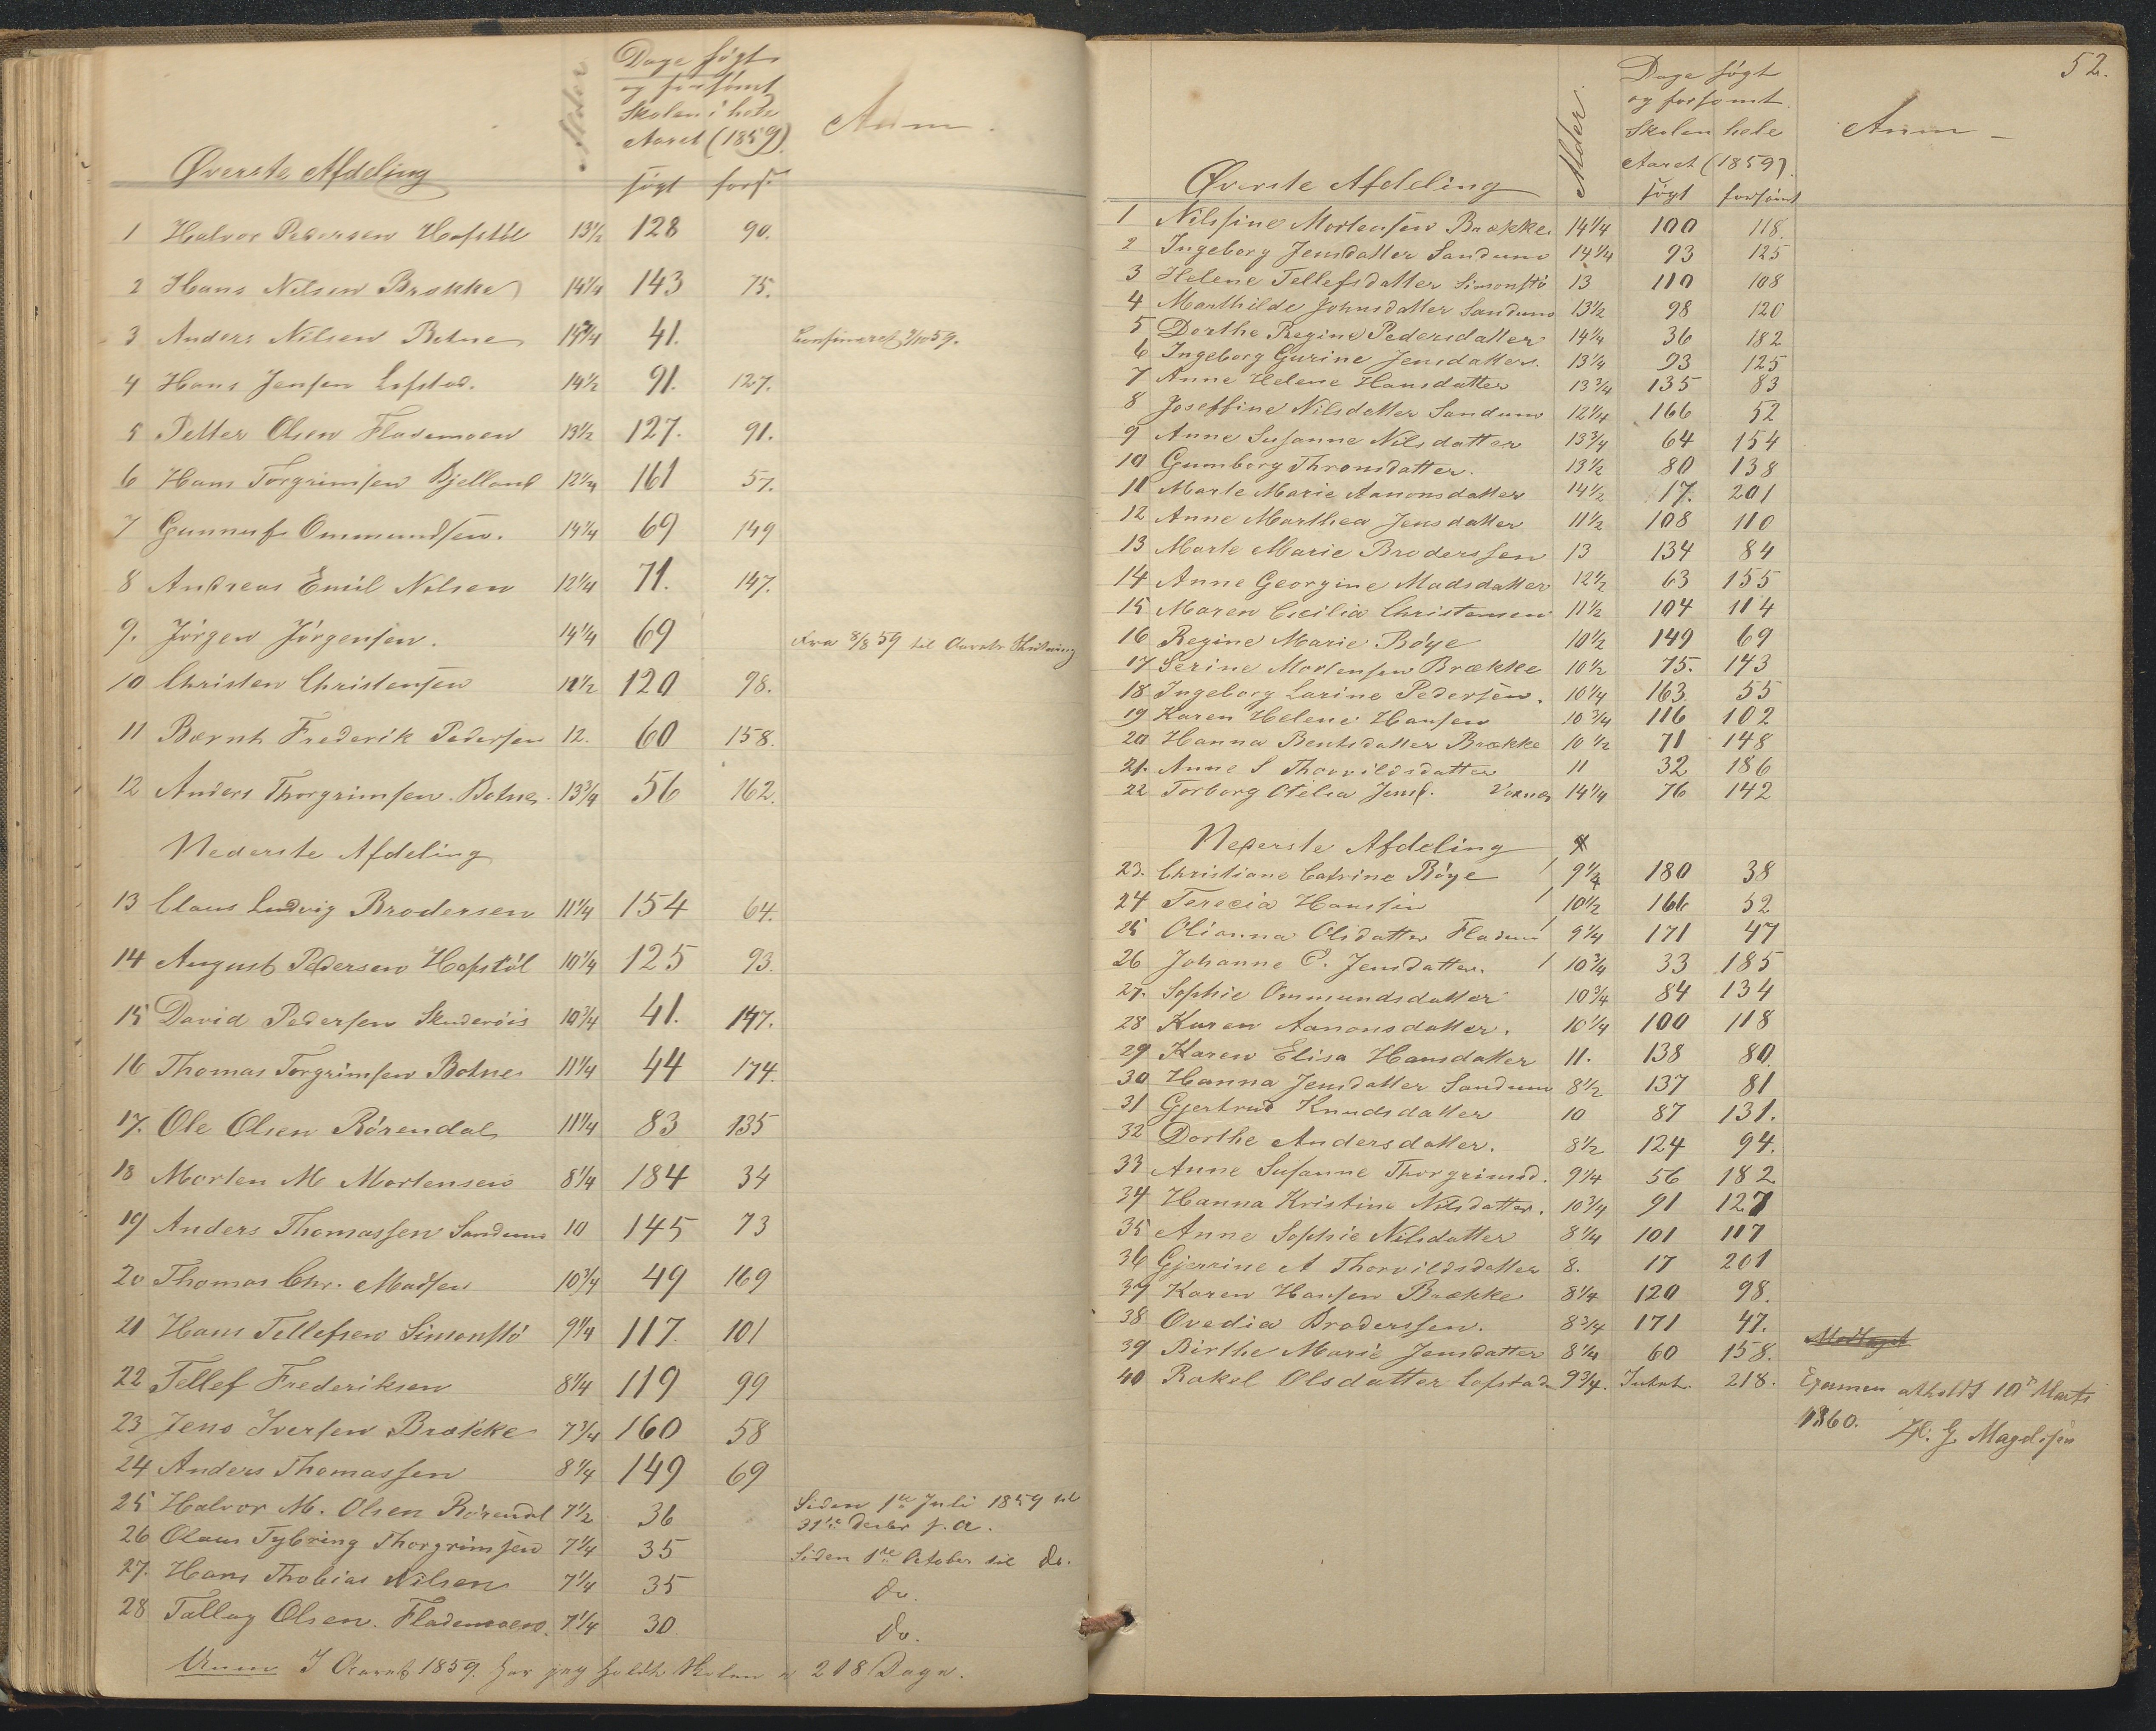 Alder
Dage søgt
og forsømt
Skolen i hele
Aaret (1859)
Anm.
Øverste Afdeling
søgt fors.
1 Halvor Pedersen Hafstöl 13½ 128 90.
2 Hans Nilsen Brække 14¼ 143 75.
3 Anders Nilsen Botne 14¾ 41. Confirmeret 2/10 59.
4 Hans Jensen Lofstad. 14½ 91. 127.
5 Petter Olsen Flademoen 13½ 127. 91.
6 Hans Torgrimsen Bjelland 12¼ 161 57.
7 Gunnuf Ommundsen. 14¼ 69 149
8 Andreas Emil Nilsen 12¼ 71. 147.
9. Jørgen Jørgensen. 14¼ 69 Fra 8/8 59 til Aarets Slutning
10 Christen Christensen 12½ 120 98.
11 Bærnt Frederik Pedersen 12. 60 158.
12 Anders Thorgrimsen Botne. 13¾ 56 162.
Nederste Afdeling
13 Claus Ludvig Brodersen 11¼ 154 64.
14 August Pedersen Hafstöl 10¼ 125 93.
15 David Pedersen 10¾ 41. 147.
16 Thomas Torgrimsen Botne 11¼ 44 174.
17. Ole Olsen Rörendal 11¼ 83 135
18 Morten M Mortensen 8¼ 184 34
19 Anders Thomassen Sandum 10 145 73
20 Thomas Chr. Madsen 10¾ 49 169
21 Hans Tellefsen Simonstö 9¼ 117. 101
22 Tellef Frederiksen 8¼ 119 99
23 Jens Iversen Brække 7¾ 160 58
24 Anders Thomassen 8¼ 149 69
25 Halvor M. Olsen Rörendl 7½ 36 Siden 1te Juli 1859 til
31te Decbr s. a.
26 Olaus Tybring Thorgrimsen 7¼ 35 Siden 1te October til do.
27. Hans Thobias Nilsen 7¼ 35 Do.
28 Tallag Olsen Flademoen. 7¼ 30 Do.
Anm I Aaret 1859. har jeg holdt Skolen i 218 Dage.
52.
Alder.
Dage søgt
og forsømt
Skolen hele
Aaret (1859).
Anm
Øverste Afdeling
søgt forsømt
1 Nilsine Mortensen Brække 14¼ 100 118.
2 Ingeborg Jensdatter Sandum 14¼ 93 125
3 Helene Tellefsdatter Simonstö 13 110 108
4 Marthilde Johnsdatter Sandum 13½ 98 120
5 Dorthe Regine Pedersdatter 14¼ 36 182
6 Ingeborg Gurine Jensdatter. 13¼ 93 125
7 Anne Helene Hansdatter 13¾ 135 83
8 Joseffine Nilsdatter Sandum 12¼ 166 52
9 Anne Susanne Nilsdatter 13¾ 64 154
10 Gumborg Thronsdatter. 13½ 80 138
11 Marte Marie Aanonsdatter 14½ 17. 201
12 Anne Marthea Jensdatter 11½ 108 110
13 Marte Marie Broderssen 13 134 84
14 Anne Georgine Madsdatter 12½ 63 155
15 Maren Cecilia Christensen 11½ 104 114
16 Regine Marie Böye 10½ 149 69
17 Serine Mortensen Brække 10½ 75. 143
18 Ingeborg Larine Pedersen. 10¼ 163 55
19 Karen Helene Hansen 10¾ 116 102
20 Hanna Bentsdatter Brække 10½ 71 148
21. Anne S Thorvildsdatter 11 32 186
22 Torborg Otelia Jensd. 14¼ 76 142
Nederste Afdeling
23. Christiane Catrine Böye 9¼ 180 38
24 Terecia Hanssin 10½ 166 52
25 Olianna Olsdatter Fladem 9¼ 171 47
26 Johanne C. Jensdatter. 10¾ 33 185
27. Sophie Ommundsdatter 10¾ 84 134
28 Karen Aanonsdatter. 10¼ 100 118
29 Karen Elisa Hansdatter 11. 138 80
30 Hanna Jensdatter Sandum 8½ 137 81
31 Gjertrud Knudsdatter 10 87 131.
32 Dorthe Andersdatter. 8½ 124 94.
33 Anne Susanne Thorgrimsd. 9¼ 56 182
34 Hanna Kristine Nilsdatter. 10¾ 91 127
35 Anne Sophie Nilsdatter 8¼ 101 117
36 Gjerrine A Thorvildsdatter 8. 17 201
37 Karen Hansen Brække 8¼ 120 98.
38 Ovedia Broderssen. 8¾ 171 47.
39 Birthe Marie Jensdatter 8¼ 60 158.
Modtaget
40 Rakel Olsdatter Lofstad 9¾. Intet 218.
Examen afholdt 10de Marts
1860.